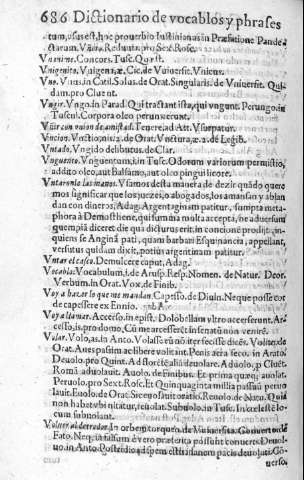 686 Dictionario de vocablos y phrases
tum, usus est, hoc prouerbio Iustinianus in Præfatione Pande
ctarum. Vñirse. Reduuia. pro Sex. Rosc.
Vnanime. Concors. Tusc. Quæst.
Vnigenito. Vnigena, æ. Cic. de Vniuersit. Vnicus.
Vno. Vnus. in Catil. Solus. de Orat. Singularis. de Vniuersit. Qui-
dam. pro Cluent.
Vngir. Vngo. in Parad. Qui tractant ista, qui vngunt. Perungo. in
Tuscul. Corpora oleo perunxerunt.
Vsurpatur.
Vncion. Vnctio, nis. 2. de Orat. Vnctura, æ. 2. de Legib.
Vntado. Vnguido delibutus. de Clar.
Vnguento. Vnguentum, i. in Tusc. Odorum variorum permistio,
addito oleo, aut balsamo, aut oleo pingui licore.
Vntarnoslas manos. Vsamos desta manera de dezir quãdo quere
mos significar que los juezes, o abogados, los amansan y ablan
dan con dinero, Adag. Argentanginam patitur, sumpta meta-
phora à Demosthene, qui summa multa accepta, ne aduersum
quempiã diceret die qua dicturus erit. in concione prodijt, in-
quiens se Anginã pati, quam barbari Esquinancia, appellant,
versutus quidam dixit, potius argentinam patitur.
Vntar el casco. Demulcere caput, Adag.
Vocablo. Vocabulum, i. de Arusp. Resp. Nomen. de Natur. Deor.
Verbum. in Orat. Vox. de Finib.
Voy a hazer lo que me mandan. Capesso. de Diuin. Neque posse cor
de capessere ex Ennio.
Voy a llamar. Accerso. in epist. Dolobellam vltro accerserunt. Ar-
cesso, is. pro domo, Cũ me arcesset in senatũ non venirē.
Volar. Volo, as. in Anto. Volasse eũ nõ iter fecisse dicēs. Volito, de
Orat. Aues passim ac libere volitant. Penis aera seco. in Arato.
Deuolo. pro Quint. Ad florētē aliā deuolare. Aduolo. p Cluēt.
Romā aduolauit. Auolo. de Finibus. Et prima quæq; auolat.
Peruolo. pro Sext. Rosc. Et Quinquaginta millia passuũ peruo
lauit. Euolo. de Orat. Sic euolauit oratio. Reuolo. de Natu. Quia
non habet vbi nitatur, reuolat. Subuolo. in Tusc. In cælestē lo-
cum subuolant.
Voluer al derredor. In orbem torquen. de Vniuersita. Conuerto. de
Fato. Neq; in falsum e vero præterita possunt conuerti. Deuol-
uo. in Anto. Postremo ad spem estis inanem pacis deuoluti. Cō
uerso.